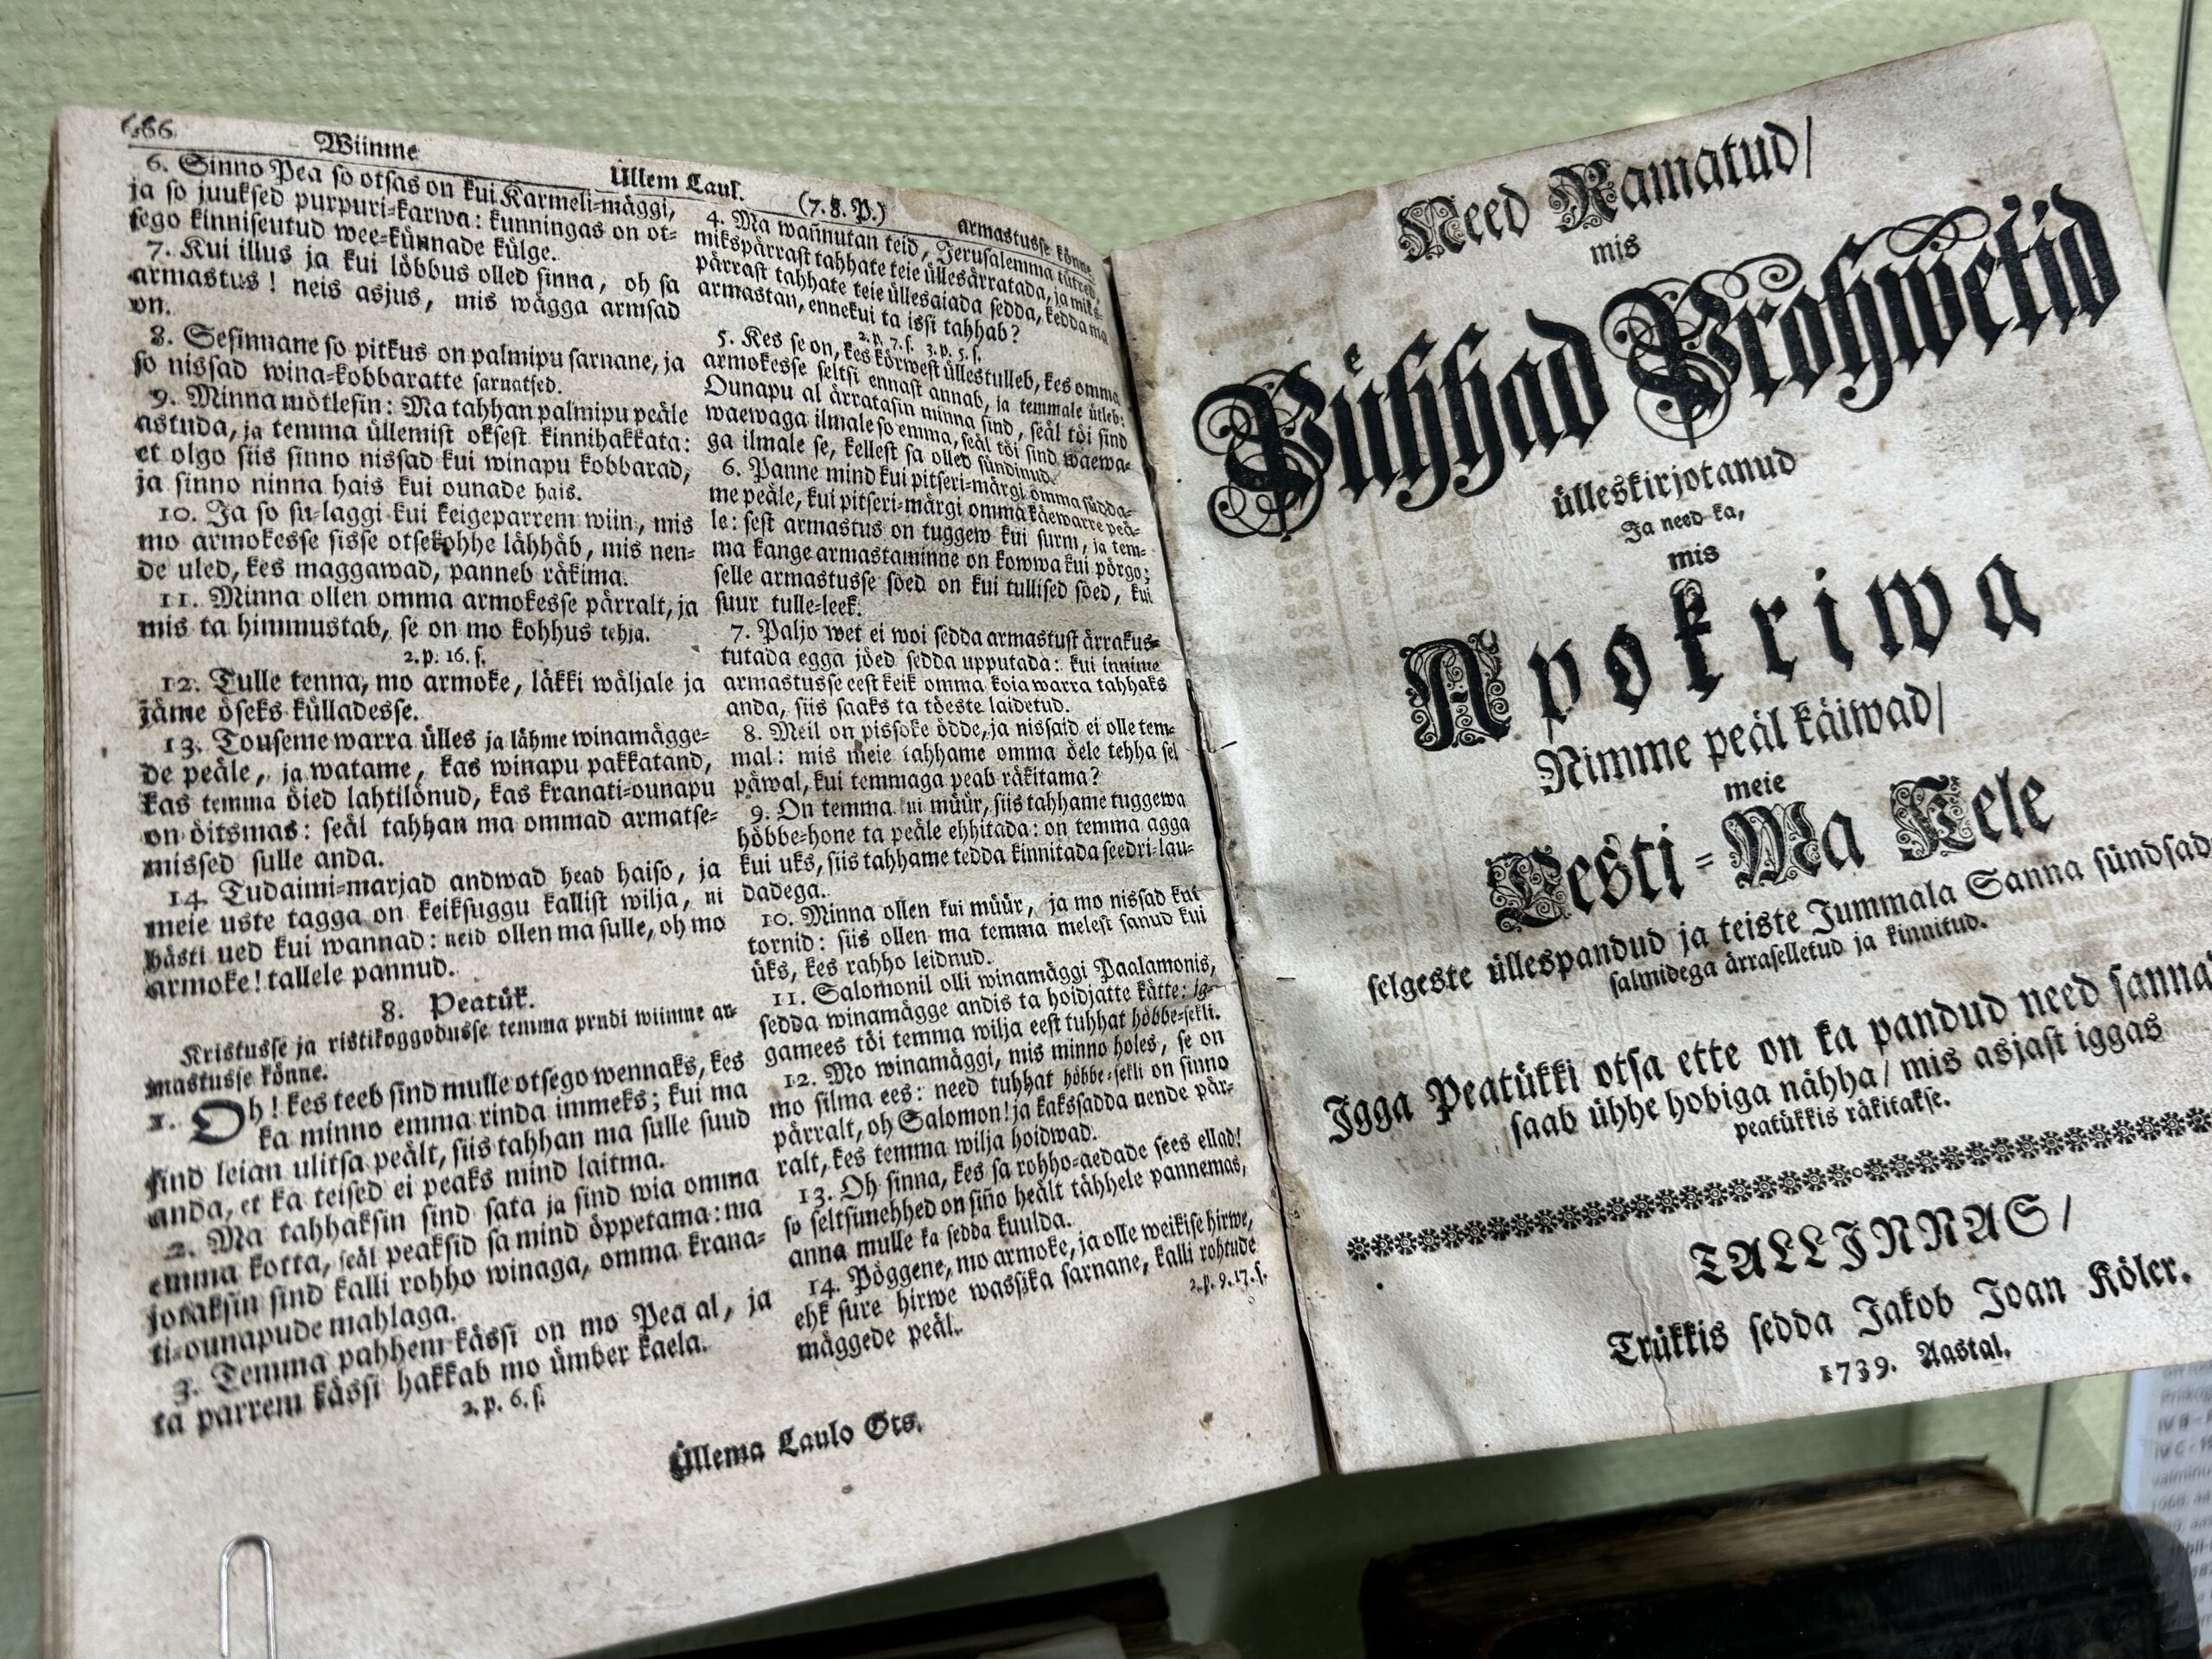 666
Wiimne
Üllem Laul.
(7. 8. P.)
armastusse könne.
6. Sinno Pea so otsas on kui Karmeli-mäggi,
ja so juuksed purpuri-karwa: kunningas on ot-
sego kinniseutud wee-künnade külge.
7. Kui illus ja kui löbbus olled sinna, oh sa
armastus! neis asjus, mis wägga armsad
on.
8. Sesinnane so pitkus on palmipu sarnane, ja
so nissad wina-kobbaratte sarnatsed.
9. Minna mötlesin: Ma tahhan palmipu peäle
astuda, ja temma üllemist oksest kinnihakkata:
et olgo siis sinno nissad kui winapu kobbarad,
ja sinno ninna hais kui ounade hais.
10. Ja so su-laggi kui keigeparrem wiin, mis
mo armokesse sisse otsekohhe lähhäb, mis nen-
de uled, kes maggawad, panneb räkima.
11. Minna ollen omma armokesse pärralt, ja
mis ta himmustab, se on mo kohhus tehja.
2. p. 16. s.
12. Tulle tenna, mo armoke, läkki wäljale ja
jäme öseks külladesse.
13. Touseme warra ülles ja lähme winamägge-
de peäle, ja watame, kas winapu pakkatand,
kas temma öied lahtilönud, kas kranati-ounapu
on öitsmas: seäl tahhan ma ommad armatse-
missed sulle anda.
14. Tudaimi-marjad andwad head haiso, ja
meie uste tagga on keiksuggu kallist wilja, ni
hästi ued kui wannad: neid ollen ma sulle, oh mo
armoke! tallele pannud.
8. Peatük.
Kristusse ja ristikoggodusse temma prudi wiimne ar-
mastusse könne.
1. Oh! kes teeb sind mulle otsego wennaks, kes
ka minno emma rinda immeks; kui ma
sind leian ulitsa peält, siis tahhan ma sulle suud
anda, et ka teised ei peaks mind laitma.
2. Ma tahhaksin sind sata ja sind wia omma
emma kotta, seäl peaksid sa mind öppetama: ma
jotaksin sind kalli rohho winaga, omma krana-
ti-ounapude mahlaga.
3. Temma pahhem kässi on mo Pea al, ja
ta parrem kässi hakkab mo ümber kaela.
2. p. 6. s.
4. Ma wañnutan teid, Jerusalemma tütred,
mikspärrast tahhate teie üllesärratada, ja miks-
pärrast tahhate teie üllesaiada sedda, kedda ma
armastan, ennekui ta issi tahhab?
2. p. 7. s. 3. p. 5. s.
5. Kes se on, kes körwest üllestulleb, kes omma
armokesse seltsi ennast annab, ja temmale ütleb:
Ounapu al ärratasin minna sind, seäl töi sind
waewaga ilmale so emma, seäl töi sind waewa-
ga ilmale se, kellest sa olled sündinud.
6. Panne mind kui pitseri-märgi omma südda-
me peäle, kui pitseri-märgi omma käewarre peä-
le: sest armastus on tuggew kui surm, ja tem-
ma kange armastaminne on kowwa kui pörgo;
selle armastusse söed on kui tullised söed, kui
suur tulle-leek.
7. Paljo wet ei woi sedda armastust ärrakus-
tutada egga jöed sedda upputada: kui innime
armastusse eest keik omma koia warra tahhaks
anda, siis saaks ta töeste laidetud.
8. Meil on pissoke ödde, ja nissaid ei olle tem-
mal: mis meie tahhame omma öele tehha sel
päwal, kui temmaga peab räkitama?
9. On temma kui müür, siis tahhame tuggewa
höbbe-hone ta peäle ehhitada: on temma agga
kui uks, siis tahhame tedda kinnitada seedri-lau-
dadega.
10. Minna ollen kui müür, ja mo nissad kui
tornid: siis ollen ma temma melest sanud kui
üks, kes rahho leidnud.
11. Salomonil olli winamäggi Paalamonis,
sedda winamägge andis ta hoidjatte kätte: ig-
gamees töi temma wilja eest tuhhat höbbe-sekli.
12. Mo winamäggi, mis minno holes, se on
mo silma ees: need tuhhat höbbe-sekli on sinno
pärralt, oh Salomon! ja kakssadda nende pär-
ralt, kes temma wilja hoidwad.
13. Oh sinna, kes sa rohho-aedade sees ellad!
so seltsimehhed on siño heält tähhele pannemas,
anna mulle ka sedda kuulda.
14. Pöggene, mo armoke, ja olle weikise hirwe,
ehk sure hirwe wassika sarnane, kalli rohtude
mäggede peäl.
2. p. 9. 17. s.
Üllema Laulo Ots.
Need Ramatud/
mis
Pühhad Prohwetid
ülleskirjotanud
Ja need ka,
mis
Apokriwa
Nimme peäl käiwad/
meie
Eesti-Ma Kele
selgeste üllespandud ja teiste Jummala Sanna sündsad
salmidega ärraselletud ja kinnitud.
Igga Peatükki otsa ette on ka pandud need sanna
saab ühhe hobiga nähha/ mis asjast iggas
peatükkis räkitakse.
TALLINNAS/
Trükkis sedda Jakob Joan Köler.
1739. Aastal.